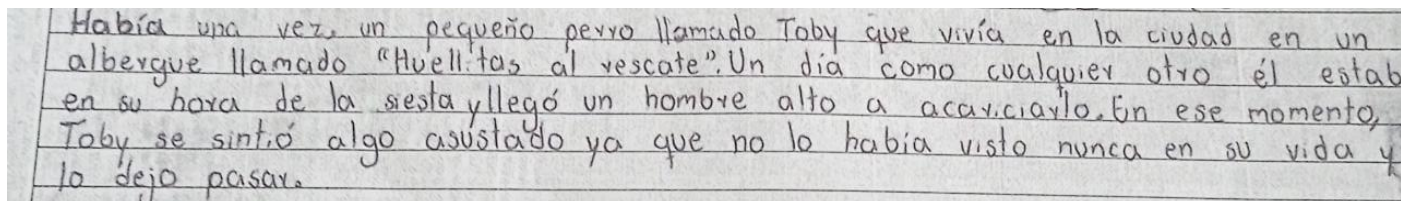 Había una vez, un pequeño perro llamado Toby que vivía en la ciudad en un
albergue llamado "Huellitas al rescate". Un día como cualquier otro él estab
en su hora de la siesta y llegó un hombre alto a acariciarlo. En ese momento,
Toby se sintió algo asustado ya que no lo había visto nunca en su vida y
lo dejo pasar.